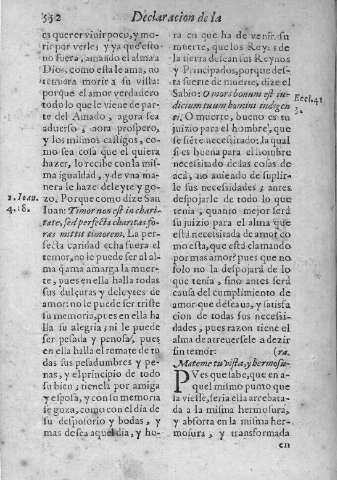 552
Declaracion de la
es querer viuir poco, y mo-
rir por verle; y ya que esto
no fuera, amando el alma a
Dios, como esta le ama, no
temiera morir a su vista:
porque el amor verdadero
todo lo que le viene de par-
te del Amado, agora sea
aduerso, aora prospero,
y los mismos castigos, co-
mo sea cosa que el quiera
hazer, lo recibe con la mis-
ma igualdad, y de vna ma-
nera le haze deleyte y go-
1. Ioan. 4. 18.
zo. Porque como dize San
Iuan: Timor non est in chari-
tate, sed perfecta charitas fo-
ras mittit timorem. La per-
fecta caridad echa fuera el
temor, no le puede ser al al-
ma q̃ ama amarga la muer-
te, pues en ella halla todas
sus dulçuras y deleytes de
amor: no le puede ser triste
su memoria, pues en ella ha
lla su alegria; ni le puede
ser pesada y penosa, pues
en ella halla el remate de to
das sus pesadumbres y pe-
nas, y el principio de todo
su bien; tienela por amiga
y esposa, y con su memoria
se goza, como con el dia de
su desposorio y bodas, y
mas desea aquel dia, y ho-
ra en que ha de venir su
muerte, que los Reyes de
la tierra desean sus Reynos
y Principados, porque des-
ta suerte de muerte, dize el
Sabio: O mors bonum est iu-
dicium tuum homini indigen
Eccl. 41. 3.
ti; O muerte, bueno es tu
juizio para el hombre, que
se siẽte necessitado; la qual
si es buena para el hombre
necessitado de las cosas de
acà, no auiendo de suplir-
le sus necessidades; antes
despojarle de todo lo que
tenia, quanto mejor será
su juizio para el alma que
està necessitada de amor co
mo esta, que està clamando
por mas amor? pues que no
solo no la despojará de lo
que tenia, sino antes será
causa del cumplimiento de
amor que deseaua, y satisfa
cion de todas sus necessi-
dades, pues razon tiene el
alma de atreuerse a dezir
sin temor: (ra.
Mateme tu vista, y hermosu-
Pves que sabe, que en a-
quel mismo punto que
la viesse, seria ella arrebata-
da a la misma hermosura,
y absorta en la misma her-
mosura, y transformada
en